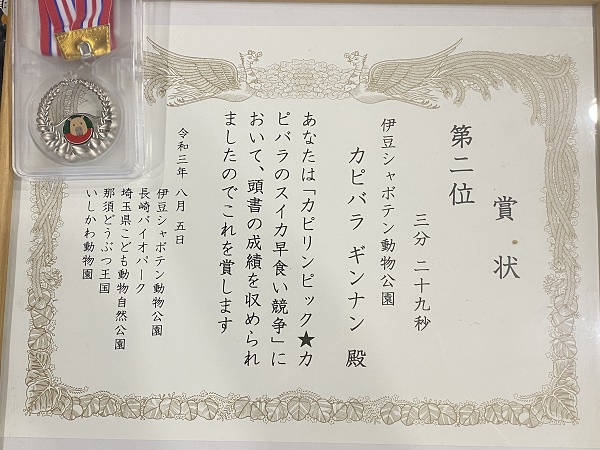 賞状
第二位
三分 二十九秒
伊豆シャボテン動物公園
カピバラ ギンナン 殿
あなたは「カピリンピック★カ
ピバラのスイカ早食い競争」に
おいて、頭書の成績を収められ
ましたのでこれを賞します
令和三年 八月 五日
伊豆シャボテン動物公園
長崎バイオパーク
埼玉県こども動物自然公園
那須どうぶつ王国
いしかわ動物園